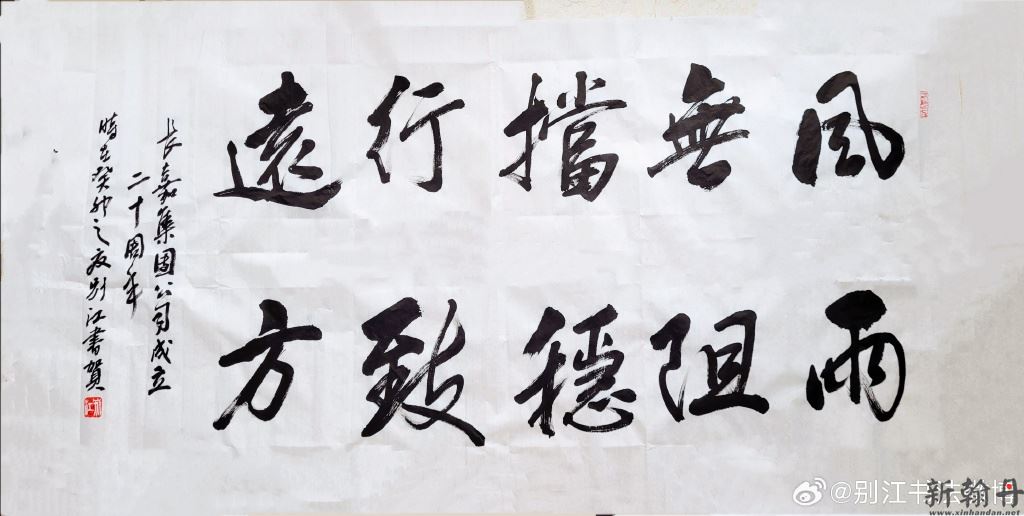 風雨
無阻
擋穩
行致
遠方
長嘉集團公司成立
二十周年
時在癸卯之夏别江書賀
@别江书法
新翰丹
www.xinhandan.net